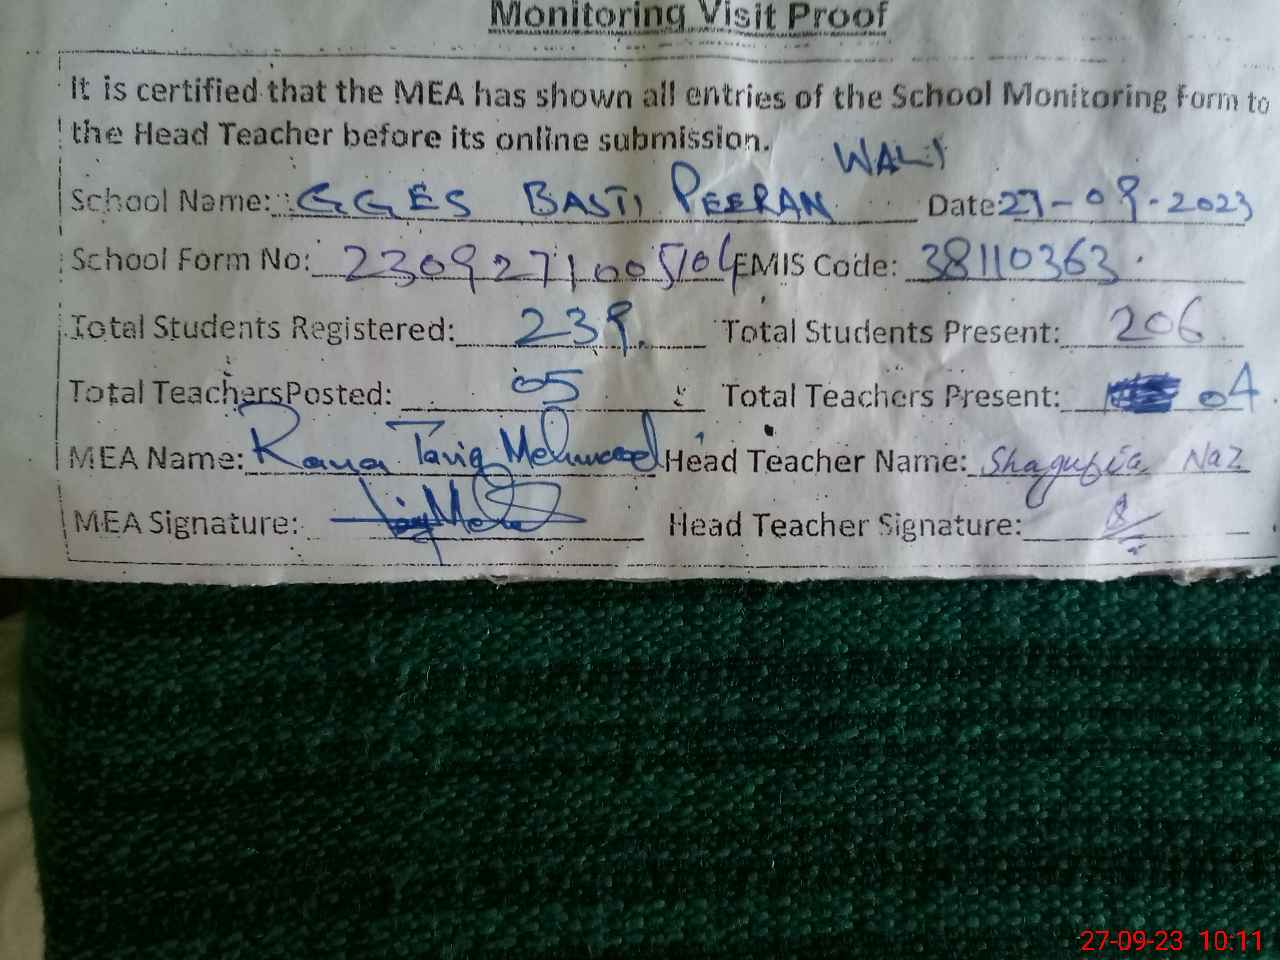 Monitoring Visit Proof
It is certified that the MEA has shown all entries of the School Monitoring Form to
the Head Teacher before its online submission.
School Name: GGES BASTI PEERAN WALI Date: 27-09-2023
School Form No: 2309271005104 EMIS Code: 38110363
Total Students Registered: 239 Total Students Present: 206
Total Teachers Posted: 05 Total Teachers Present: 04
MEA Name: Rana Tariq Mehmood Head Teacher Name: Shagufta Naz
MEA Signature: Head Teacher Signature:
27-09-23 10:11